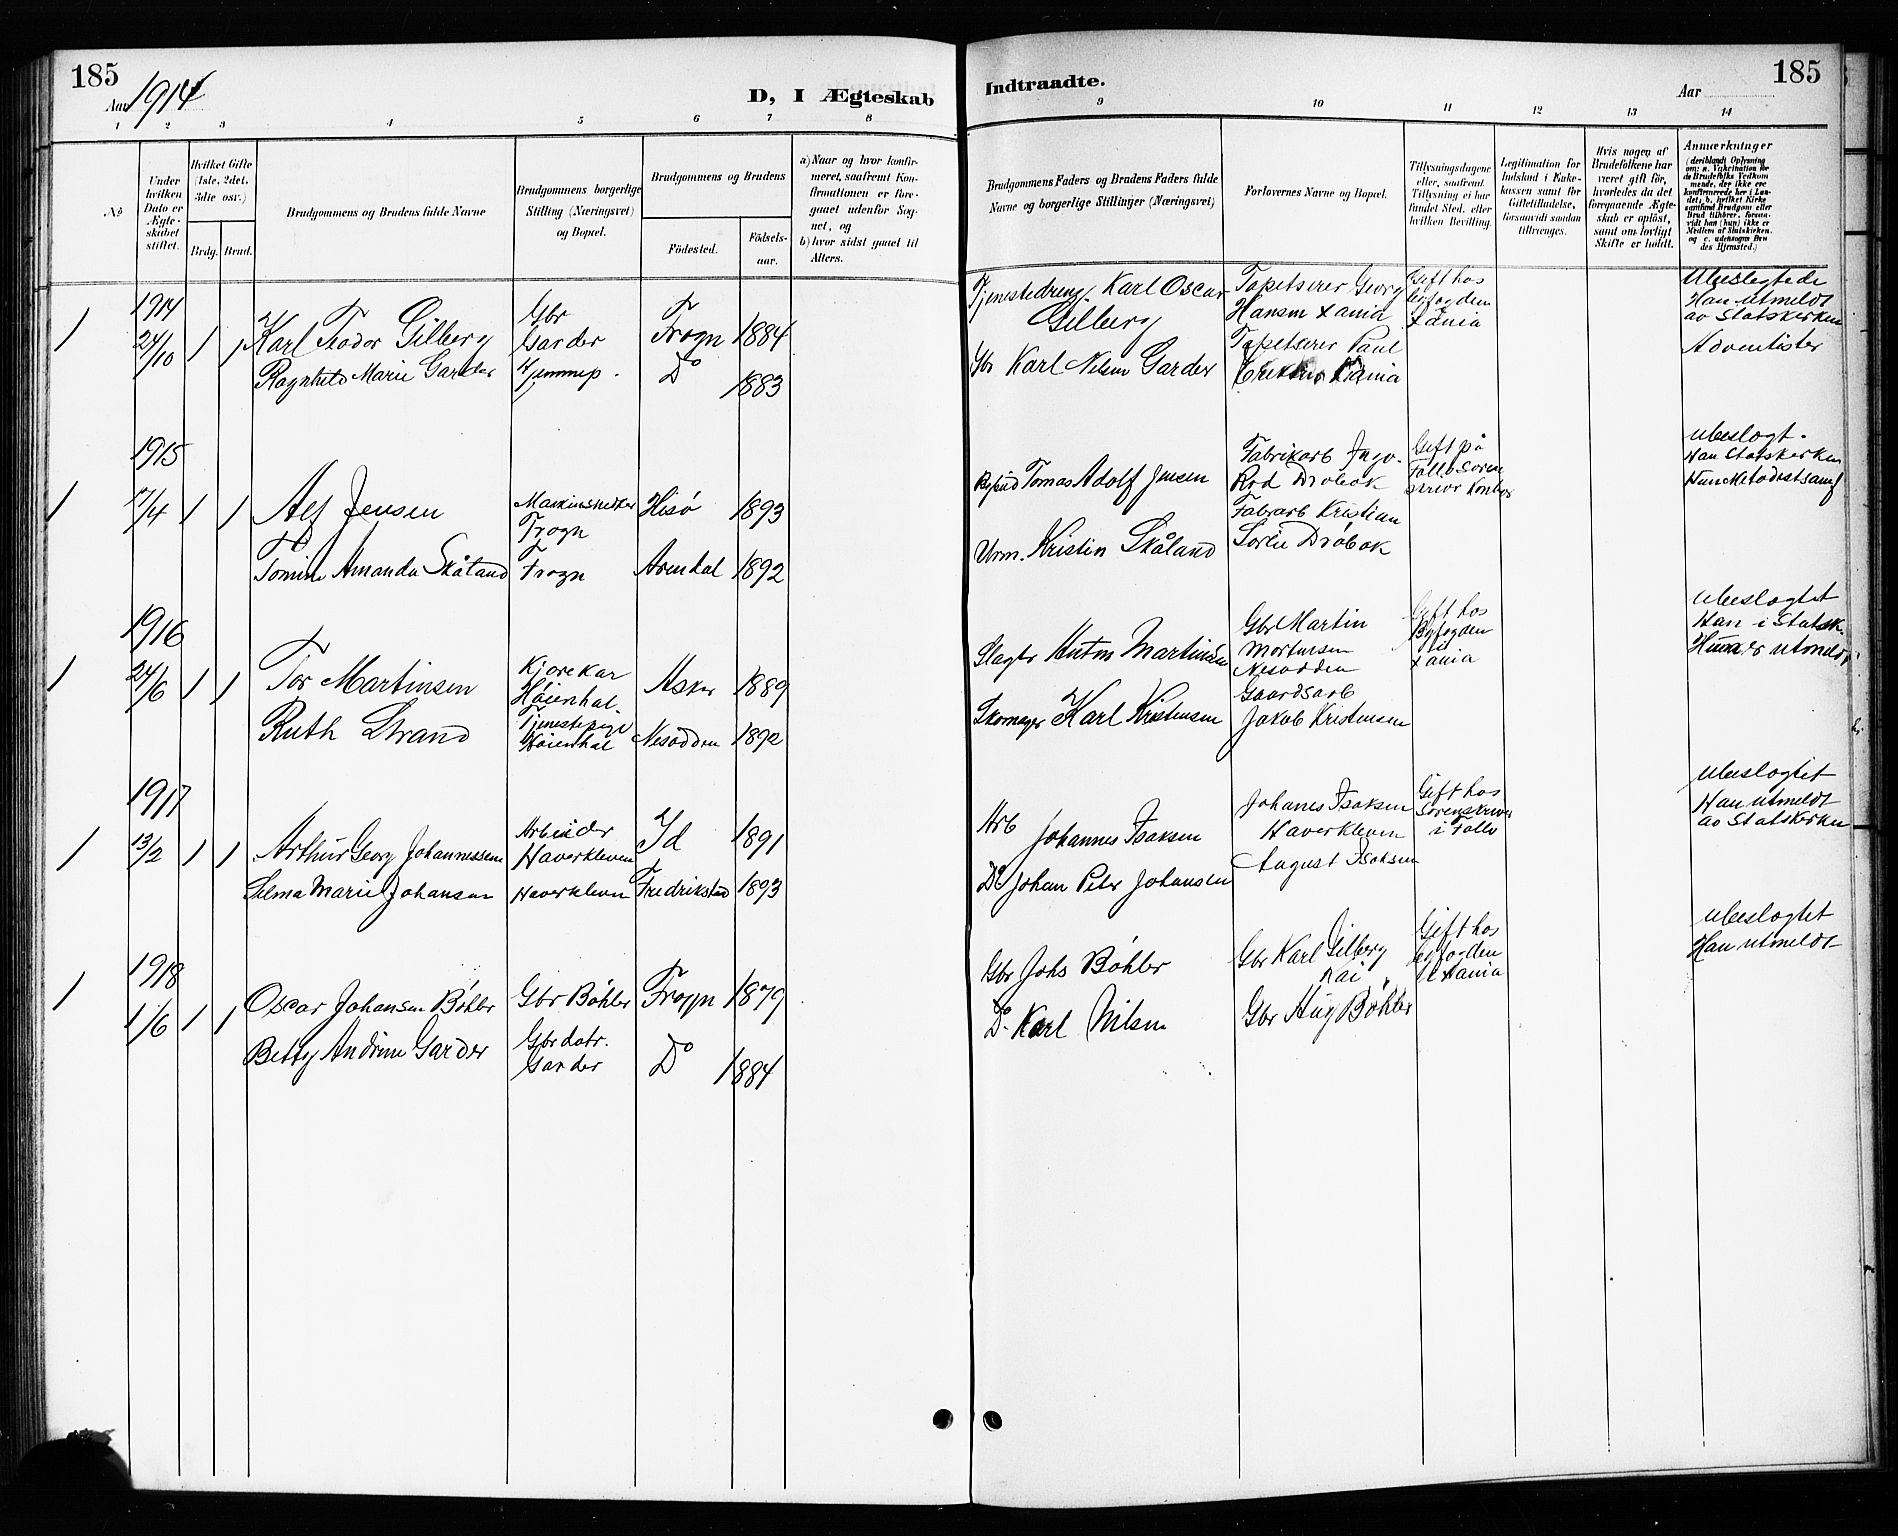 185
Aar 1914
D, I Ægteskab
1 2 3 4 5 6 7 8
No
Under hvilken Dato er Ægteskabet stiftet.
Hvilket Gifte (1ste, 2det, 3die osv.)
Brdg. Brud.
Brudgommens og Brudens fulde Navne
Brudgommens borgerlige Stilling (Næringsvei) og Bopæl.
Brudgommens og Brudens
Fødested.
Fødselsaar.
a) Naar og hvor konfirmeret, saafremt Konfirmationen er foregaaet udenfor Sognet, og
b) hvor sidst gaaet til Alters.
1914
1 24/10 1 1 Karl Teodor Gilberg Gbr Garder Frogn 1884
Ragnhild Marie Garder Hjemmep. Do 1883
1915
1 17/4 1 1 Alf Jensen Maskinsmelter Frogn Hisø 1893
Tomine Amanda Skåland Frogn Arendal 1892
1916
1 24/6 1 1 Tor Martinsen Kjørekar Høienhal. Asker 1889
Ruth Strand Tjenestepige Høienhal Nesodden 1892
1917
1 13/2 1 1 Arthur Georg Johannessen Arbeider Haverkleven Id 1891
Selma Marie Johansen Haverkleven Fredrikstad 1893
1918
1 1/6 1 1 Oscar Johansen Bøhler Gbr Bøhler Frogn 1879
Betty Andrine Garder Gbrdatr. Garder Do 1884
Indtraadte.
185
Aar
9 10 11 12 13 14
Brudgommens Faders og Brudens Faders fulde Navne og borgerlige Stillinger (Næringsvei)
Forlovernes Navne og Bopæl.
Tillysningsdagene eller, saafremt Tillysning ei har fundet Sted, efter hvilken Bevilling.
Legitimation for Indskud i Enkekassen samt for Giftetilladelse, forsaavidt saadan tiltrænges.
Hvis nogen af Brudefolkene har været gift før, hvorledes da det foregaaende Ægteskab er opløst, samt om lovligt Skifte er holdt.
Anmærkninger
(deriblandt Oplysning om: a. Vakcination for de Brudefolks Vedkommende, der ikke ere konfirmerede her i Landet; b. hvilket Kirkesamfund Brudgom eller Brud tilhører, forsaavidt han (hun) ikke er Medlem af Statskirken, og c. udensogns Brudes Hjemsted.)
Tjenestedreng Karl Oscar Gilberg Tapetserer Georg Hansen Xania Gift hos byfogden Xania Ubeslegtede Han utmeldt av Statskirken
Gbr Karl Nilsen Garder Tapetserer Paul Xania Adventister
Tomas Adolf Jensen Fabrikarb Drøbak Gift på Follo Soren Ubeslegt. Han Statskirken Hun Metodistsamf
Urm. Kristin Skåland Fabrarb Kristian Drøbak
Slagter Anton Martinsen Gbr Martin Mortensen Nesodden Gift hos Byfogden Xania Ubeslegtet Han i Statsk. Hun er utmeldt
Skomager Karl Kristensen Gaardsarb Jakob Kristensen
Arb Johannes Isaksen Johanes Isaksen Haverkleven Gift hos Sorenskriver i Follo Ubeslegtet Han utmeldt av Statskirken
Do Johan Peter Johansen August Isaksen
Gbr Johs Bøhler Gbr Karl Gilberg Kai " Gift hos byfogden Xania Ubeslegtet Han utmeldt
Do. Karl Nilsen Gbr Aug Bøhler